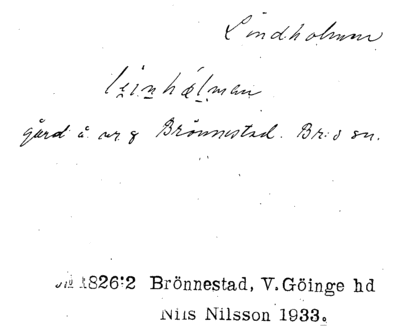 Lindholmen
leinhælman
gård å nr 8 Brönnestad. Br:s sn.
№ 1826:2 Brönnestad, V. Göinge hd
Nils Nilsson 1933.